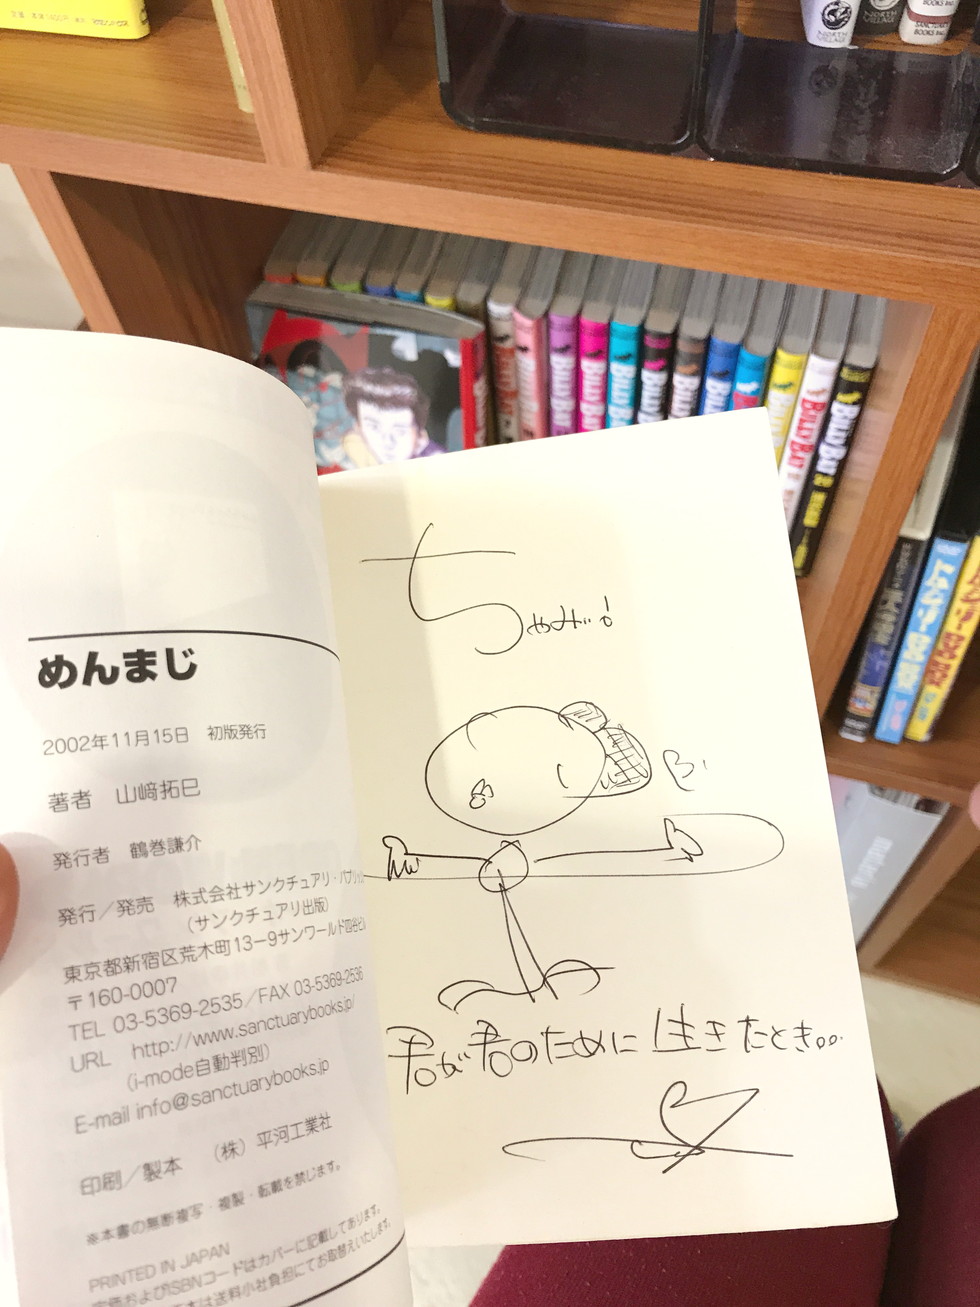 NORTH VILLAGE
NORTH VILLAGE
SANCTUARY BOOKS
BILLY BAT
BILLY BAT
BILLY BAT
BILLY BAT
BILLY BAT
BILLY BAT
BILLY BAT
BILLY BAT
めんまじ
2002年11月15日 初版発行
著者 山﨑拓巳
発行者 鶴巻謙介
発行／発売 株式会社サンクチュアリ・パブリッシ
（サンクチュアリ出版）
東京都新宿区荒木町13−9サンワールド四谷ビ
〒160-0007
TEL 03-5369-2535／FAX 03-5369-2536
URL http://www.sanctuarybooks.jp/
（i-mode自動判別）
E-mail info@sanctuarybooks.jp
印刷／製本 （株）平河工業社
※本書の無断複写・複製・転載を禁じます。
PRINTED IN JAPAN
定価およびISBNコードはカバーに記載してあります。
本は送料小社負担にてお取替えいたします。
ちゃみ!
君が君のために生きたとき。。.